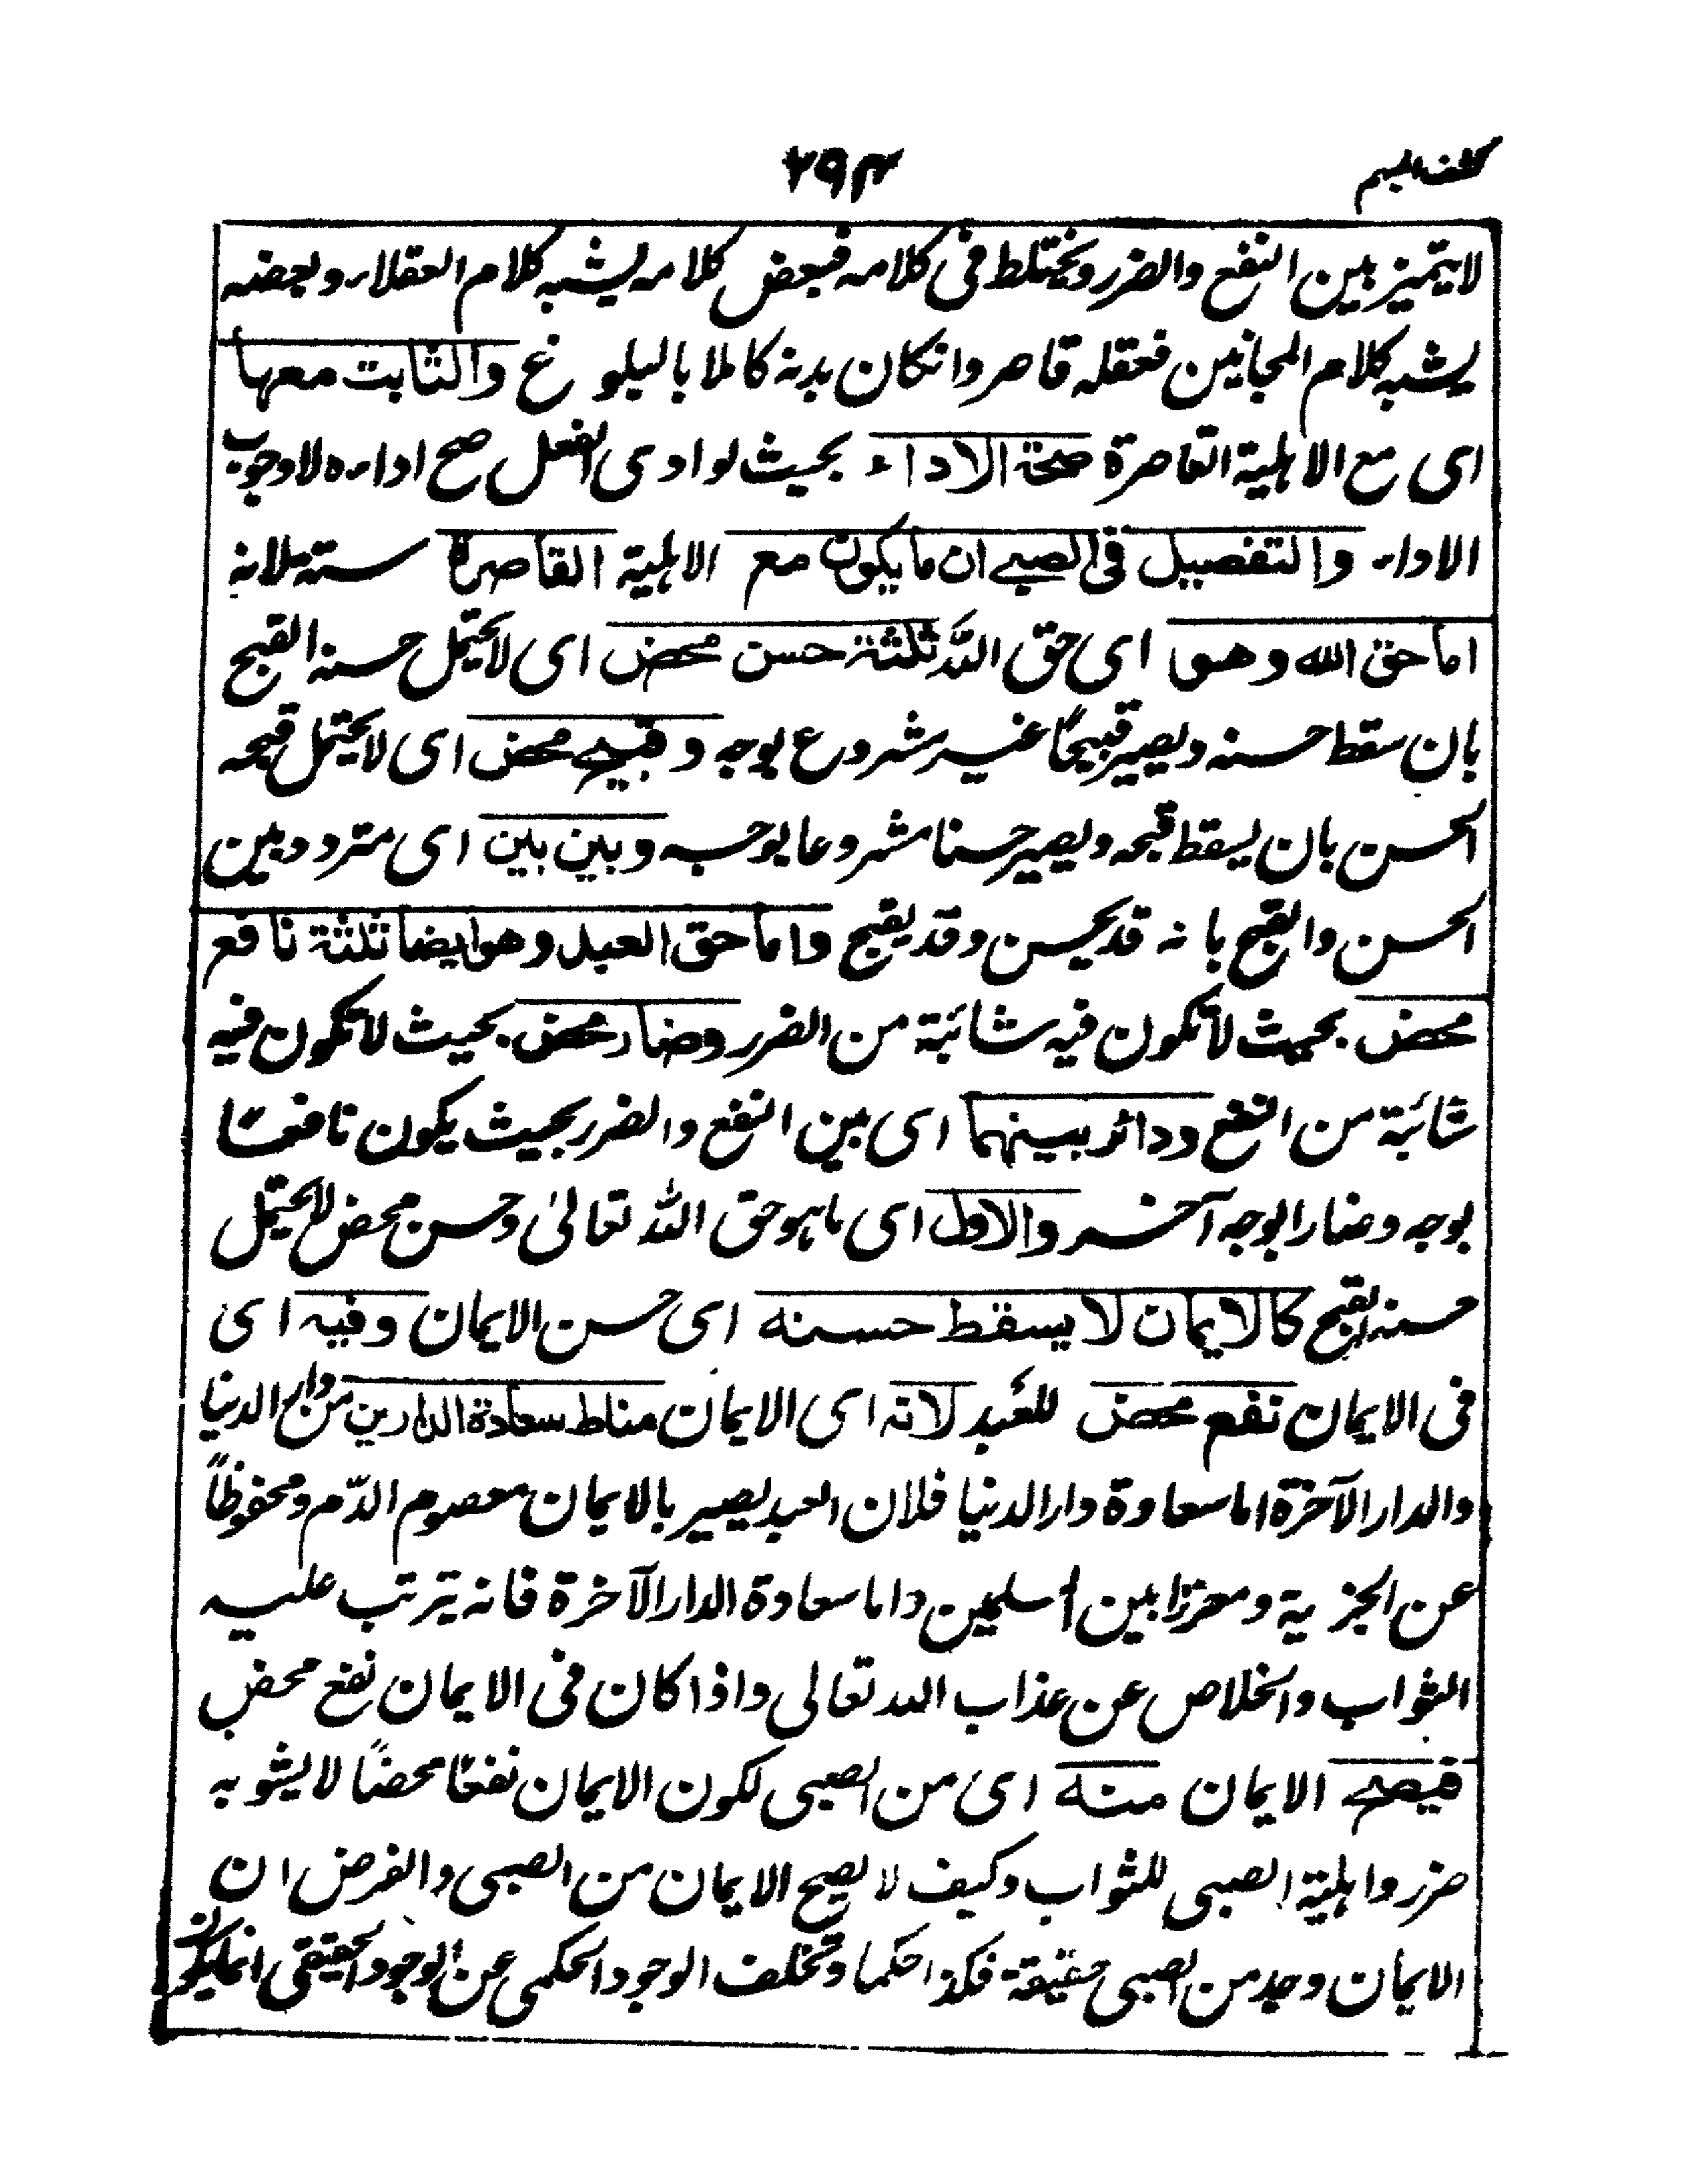 كشف المبهم
٢٩٣
لا يتميز بين النفع والضرر ويختلط فى كلامه فبعض كلامه يشبه كلام العقلاء وبعضه
يشبه كلام المجانين فعقله قاصر وانكان بدنه كاملا بالبلوغ والثابت معها
اى مع الاهلية القاصرة صحة الاداء بحيث لو ادى الفعل صح اداءه لا وجوب
الاداء والتفصيل فى الصبے ان ما يكون مع الاهلية القاصرة ستة لانه
اما حق الله وهو اى حق الله ثلثة حسن محض اى لا يحتمل حسنه القبح
بان سقط حسنه ويصير قبيحًا غير مشروع بوجه وقبيح محض اى لا يحتمل قبحه
الحسن بان يسقط قبحه ويصير حسنا مشروعا بوجه وبين بين اى متردد بين
الحسن والقبح بانه قد يحسن وقد يقبح واما حق العبد وهو ايضا ثلثة نافع
محض بحيث لا تكون فيه شائبة من الضرر وضار محض بحيث لا تكون فيه
شائبة من النفع ودائر بينهما اى بين النفع والضرر بحيث يكون نافعًا
بوجه وضارا بوجه آخر والاول اى ما هو حق الله تعالىٰ وحسن محض لا يحتمل
حسنه القبح كالايمان لا يسقط حسنه اى حسن الايمان وفيه اى
فى الايمان نفع محض للعبد لانه اى الايمان مناط سعادة الدارين من دار الدنيا
والدار الآخرة اما سعادة دار الدنيا فلان العبد يصير بالايمان معصوم الدّم ومحفوظاً
عن الجزية ومعززا بين المسلمين واما سعادة الدار الآخرة فانه يترتب عليه
الثواب والخلاص عن عذاب الله تعالى واذا كان فى الايمان نفع محض
فيصح الايمان منه اى من الصبى لكون الايمان نفعًا محضًا لا يشوبه
ضرر واهلية الصبى للثواب وكيف لا يصح الايمان من الصبى والفرض ان
الايمان وجد من الصبى حقيقة فكذا حكما وتخلف الوجود الحكمى عن الوجود الحقيقى انما يكون